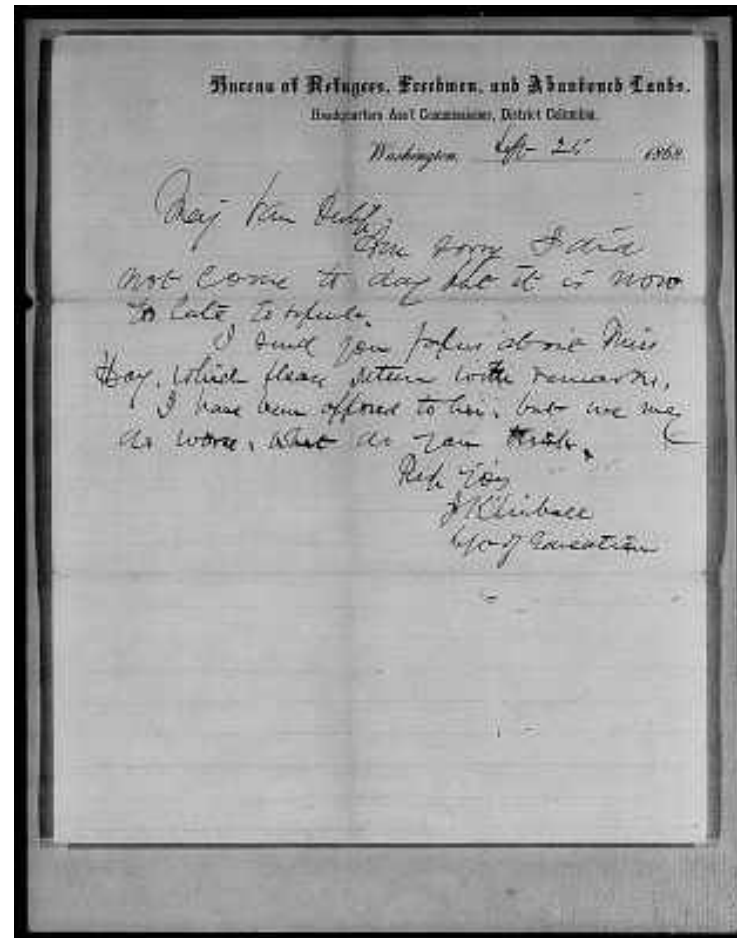 Bureau of Refugees, Freedmen, and Abandoned Lands.
Headquarters Ass't Commissioner, District Columbia.
Washington, Sept 25 1868
Maj Van
Am sorry I did
not come to day but it is now
to late to
I send you papers about Miss
Hay, which please return with remarks.
I have been opposed to her, but we may
do worse, what do you think.
Resp yours
J Kimball
of Education